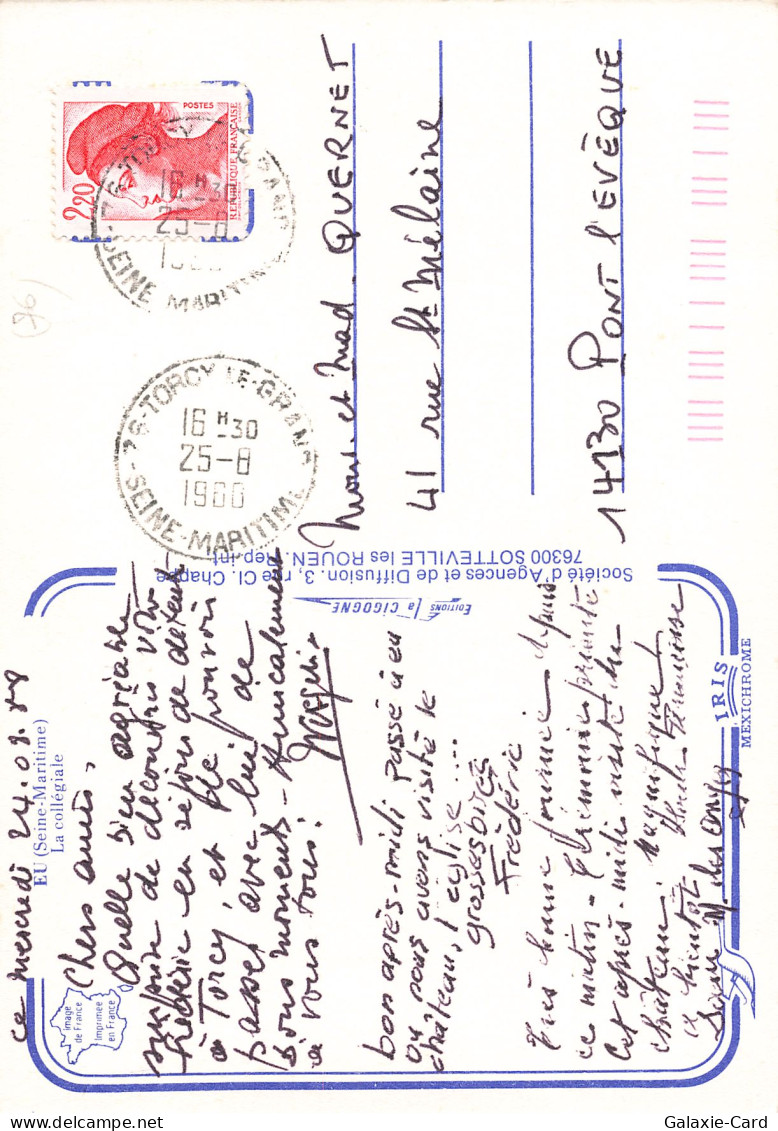 ce mercredi 24.08.88
EU (Seine-Maritime)
La collégiale
Image
de France
Imprimée
en France
Chers amis,
Quelle bien agréable
surprise de découvrir votre
Frédéric en séjour de détente
à Torcy, et pu pouvoir
passer avec lui de
bons moments - Amicalement
à vous tous !
bon après-midi passé à eu
ou nous avons visité le
château, l'église ....
grosses bises
Frédéric
Très bonne journée depuis
ce matin -
Cet après-midi visite du
château. Magnifique !
à bientôt
Société d'Agences et de Diffusion. 3, rue Cl. Chappe
76300 SOTTEVILLE les ROUEN. Rep. int.
EDITIONS la CIGOGNE
IRIS
MEXICHROME
POSTES
2,20
REPUBLIQUE FRANÇAISE
16 H 30
25-8
SEINE MARITIME
76-TORCY-LE-GRAND
16 H 30
25-8
1988
SEINE-MARITIME
(76)
Mons. et Mad. QUERNET
41 rue St Mélaine
14130 PONT l'EVÈQUE
Galaxie-Card